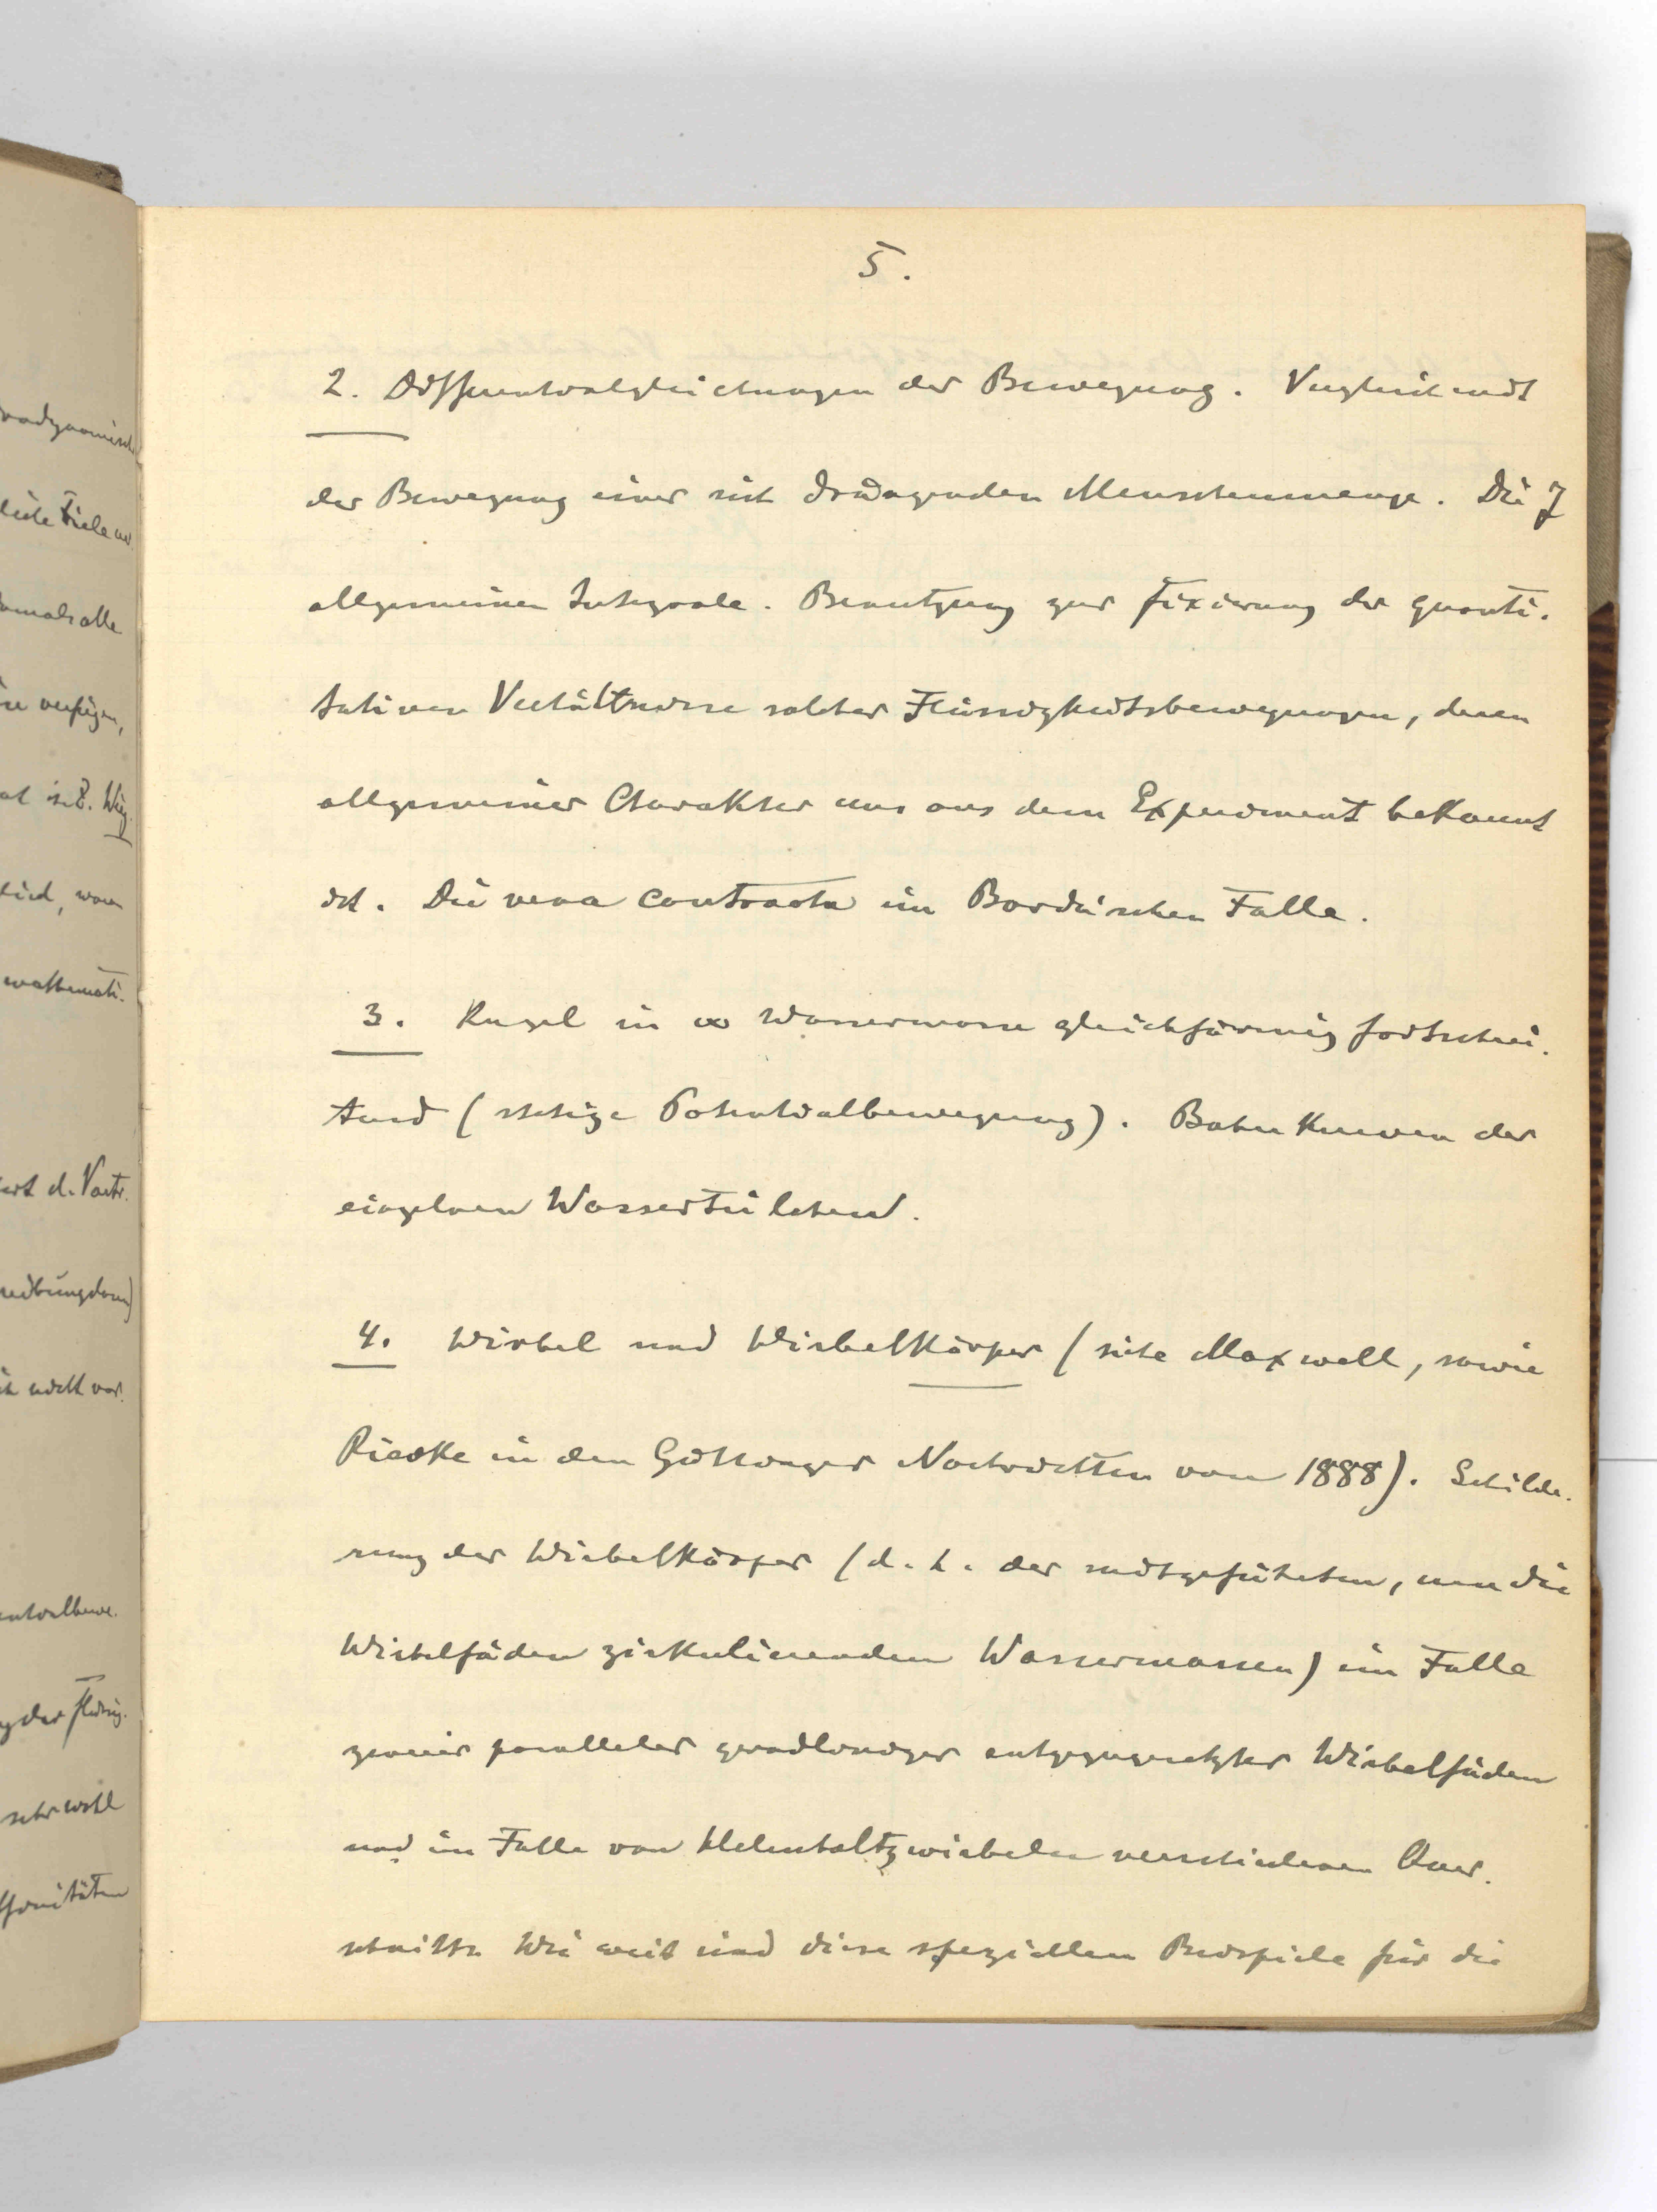 5.
2. Differentialgleichungen der Bewegung. Vergleich mit
der Bewegung einer sich drängenden Menschenmenge. Die 7
allgemeinen Integrale. Benutzung zur Fixierung der quanti-
tativen Verhältnisse solcher Flüssigkeitsbewegungen, deren
allgemeiner Charakter uns aus dem Experiment bekannt
ist. Die vena contracta im Borda'schen Falle.
3. Kugel in ∞ Wassermasse gleichförmig fortschrei-
tend (stetige Potentialbewegung). Bahnkurven der
einzelnen Wasserteilchen.
4. Wirbel und Wirbelkörper (siehe Maxwell, sowie
Riecke in den Göttinger Nachrichten von 1888). Schilde-
rung der Wirbelkörper (d. h. der mitgeführten, um die
Wirbelfäden zirkulierenden Wassermassen) im Falle
zweier paralleler geradliniger entgegengesetzter Wirbelfäden
und im Falle von Helmholtzwirbeln verschiedenen Quer-
schnitts. Wie weit sind diese speziellen Beispiele für die
leichte Fiele
damals alle
verfügen,
mathemati-
d. Vortr.
nicht vor.
sehr wohl